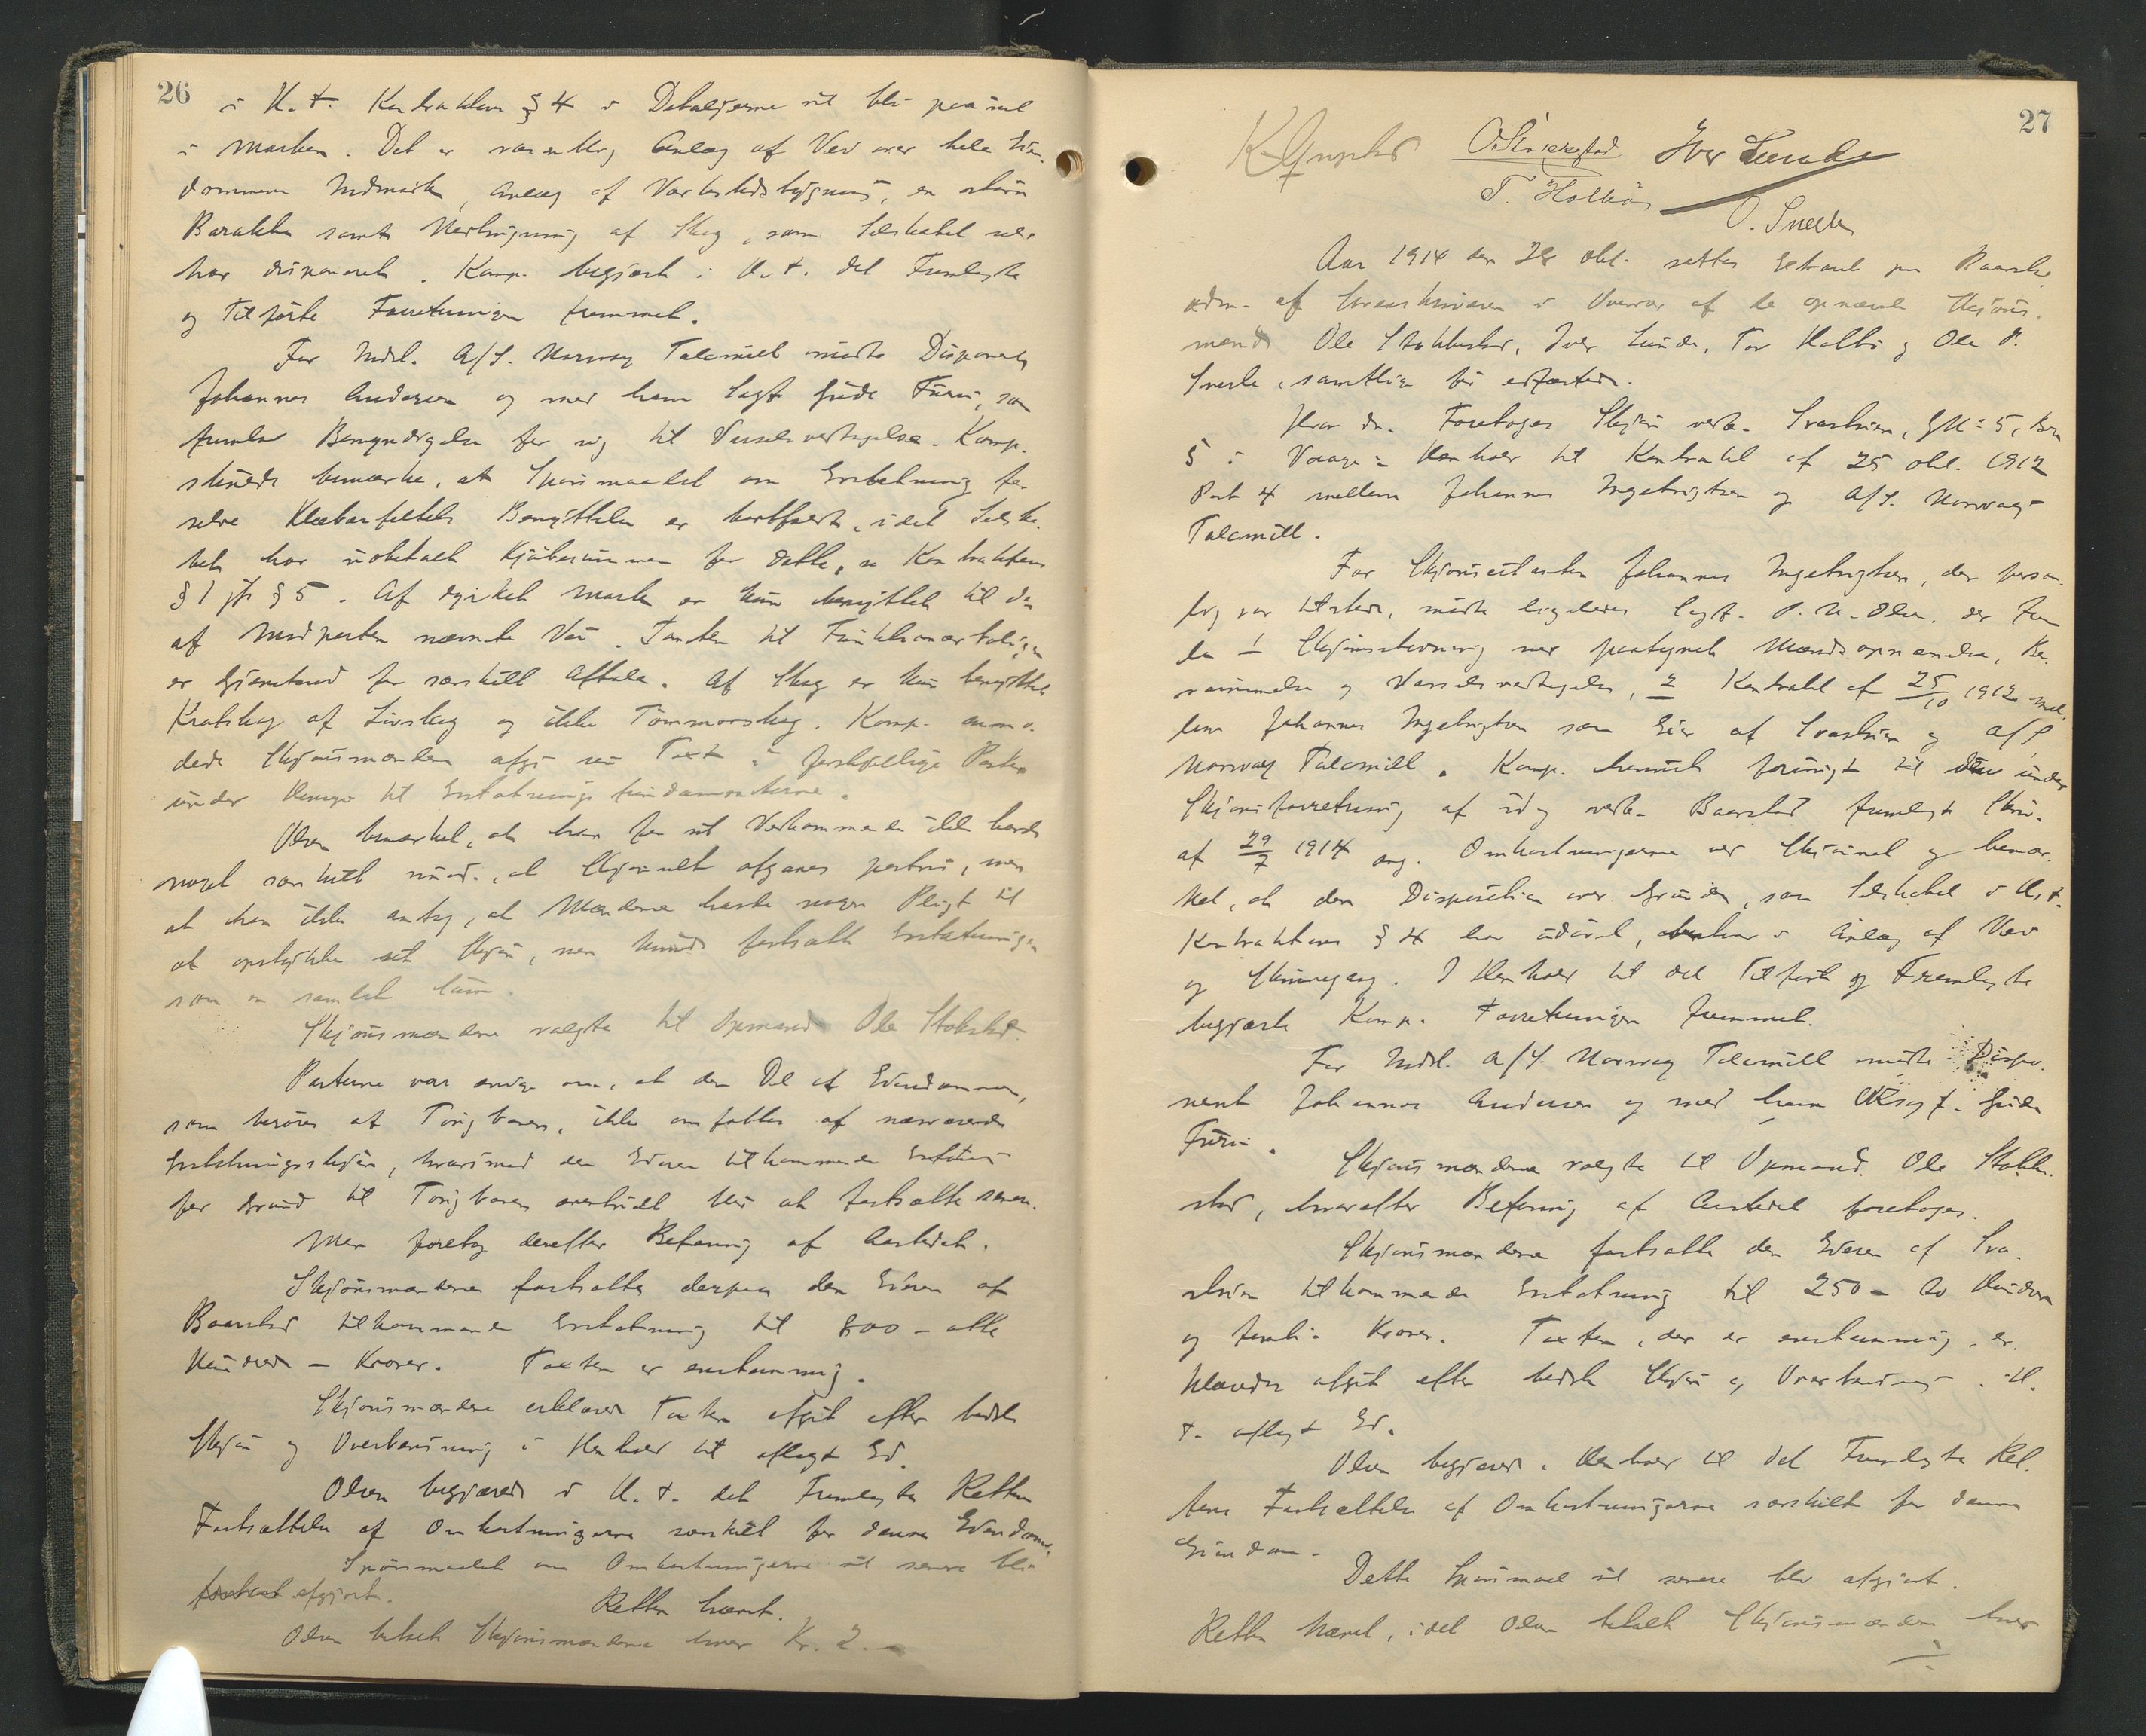 26
i H. t. Kontraktens § 4 o Detaljerne vil bli paavist
i Marken. Det er væsentlig Anlæg af Vei over hele Eien-
dommens Indmark, Anlæg af Værkstedsbygning, en større
Barakke samt Nedhugning af Skog, som Selskabet selv
har disponeret. Komp. begjært i H. t. det Fremlagte
og Tilførte Forretningen fremmet.
For Indst. A/S. Norway Talcmill mødte Disponent
Johannes Andersen og med ham Sagf. Gude Furu, som
fremla Bemyndigelse for sig til Varselsvedtagelse. Komp.
skulde bemærke, at Spørsmaalet om Erstatning for
selve Klæberfeltets Benyttelse er bortfaldt, idet Selska-
bet har utbetalt Kjøbesummen for dette, se Kontraktens
§ 1 jfr § 5. Af dyrket Mark er kun benyttet til den
af Modparten nævnte Vei. Tomten til Funktionærboligen
er Gjenstand for særskilt Aftale. Af Skog er kun benyttet
Kratskog af Løvskog og ikke Tømmerskog. Komp. anmo-
dede Skjønsmændene afgi sin Taxt i forskjellige Poster
under Hensyn til Erstatningsfundamenterne.
Olsen bemærket, at han for sit Vedkommende ikke havde
noget særskilt imod, at Skjønnet afgaves postvis, men
at han ikke antog, at Mændene havde nogen Pligt til
at opstykke sit Skjøn, men kunde fastsætte Erstatningen
som en samlet Sum.
Skjønsmændene valgte til Opmand Ole Stokstad.
Parterne var enige om, at den Del af Eiendommen,
som berøres af Taugbanen, ikke omfattes af nærværende
Erstatningsskjøn, hvorimod den Eieren tilkommende Erstatning
for Grund til Taugbanen eventuelt blir at fastsætte senere.
Man foretog derefter Befaring af Aastedet.
Skjønsmændene fastsatte derpaa den Eieren af
Baarstad tilkommende Erstatning til 800 – otte
Hundrede – Kroner. Taxten er enstemmig.
Skjønsmændene erklærer Taxten afgit efter bedste
Skjøn og Overbevisning i Henhold til aflagt Ed.
Olsen begjærede i H. t. det Fremlagte Rettens
Fastsættelse af Omkostningerne særskilt for denne Eiendom.
Spørsmaalet om Omkostningerne vil senere bli
afgjort.
Retten hævet.
Olsen betalt Skjønsmændene hver Kr. 2.–
27
Iver Lunde
T. Holbø
O. Snerle
Aar 1914 den 28 Okt. sattes Extraret paa Baarstad
adm. af Sorenskriveren i Overvær af de opnævnte Skjøns-
mænd Ole Stokkestad, Iver Lunde, Tor Holbø og Ole O.
Snerle, samtlige før edfæstede.
Hvor da Foretoges Skjøn vedk. Svastuen, G.N. 5, Bn
5 i Vaage i Henhold til Kontrakt af 25 Okt. 1912
Post 4 mellem Johannes Ingebrigtsen og A/S. Norway
Talcmill.
For Skjønscitanten Johannes Ingebrigtsen, der person-
lig var tilstede, mødte ligeledes Sagf. O. N. Olsen, der frem
la 1 Skjønsstevning med paategnet Mandsopnævnelse, Be-
rammelse og Varselsvedtagelse, 2 Kontrakt af 25/10 1912 mel-
lem Johannes Ingebrigtsen som Eier af Svastuen og A/S
Norway Talcmill. Komp. henviste forøvrigt til den under
Skjønsforretning af idag vedk. Baarstad fremlagte Skriv.
af 29/7 1914 ang. Omkostningerne ved Skjønnet og bemær-
ket, at den Disposition over Grunden, som Selskabet i H. t.
Kontraktens § 4 har udøvet, bestaar i Anlæg af Vei
og Skinnegang. I Henhold til det Tilførte og Fremlagte
begjærte Komp. Forretningen fremmet.
For Indst. A/S. Norway Talcmill mødte Dispo-
nent Johannes Andersen og med ham Sagf. Gude
Furu.
Skjønsmændene valgte til Opmand Ole Stokke-
stad, hvorefter Befaring af Aastedet foretoges.
Skjønsmændene fastsatte den Eieren af Sva-
stuen tilkommende Erstatning til 250 – to Hundrede
og femti – Kroner. Taxten, der er enstemmig, er-
klæredes afgit efter bedste Skjøn og Overbevisning i H.
t. aflagt Ed.
Olsen begjærede i Henhold til det Fremlagte Ret-
tens Fastsættelse af Omkostningerne særskilt for denne
Eiendom.
Dette Spørsmaal vil senere bli afgjort.
Retten hævet, idet Olsen betalte Skjønsmændene hver